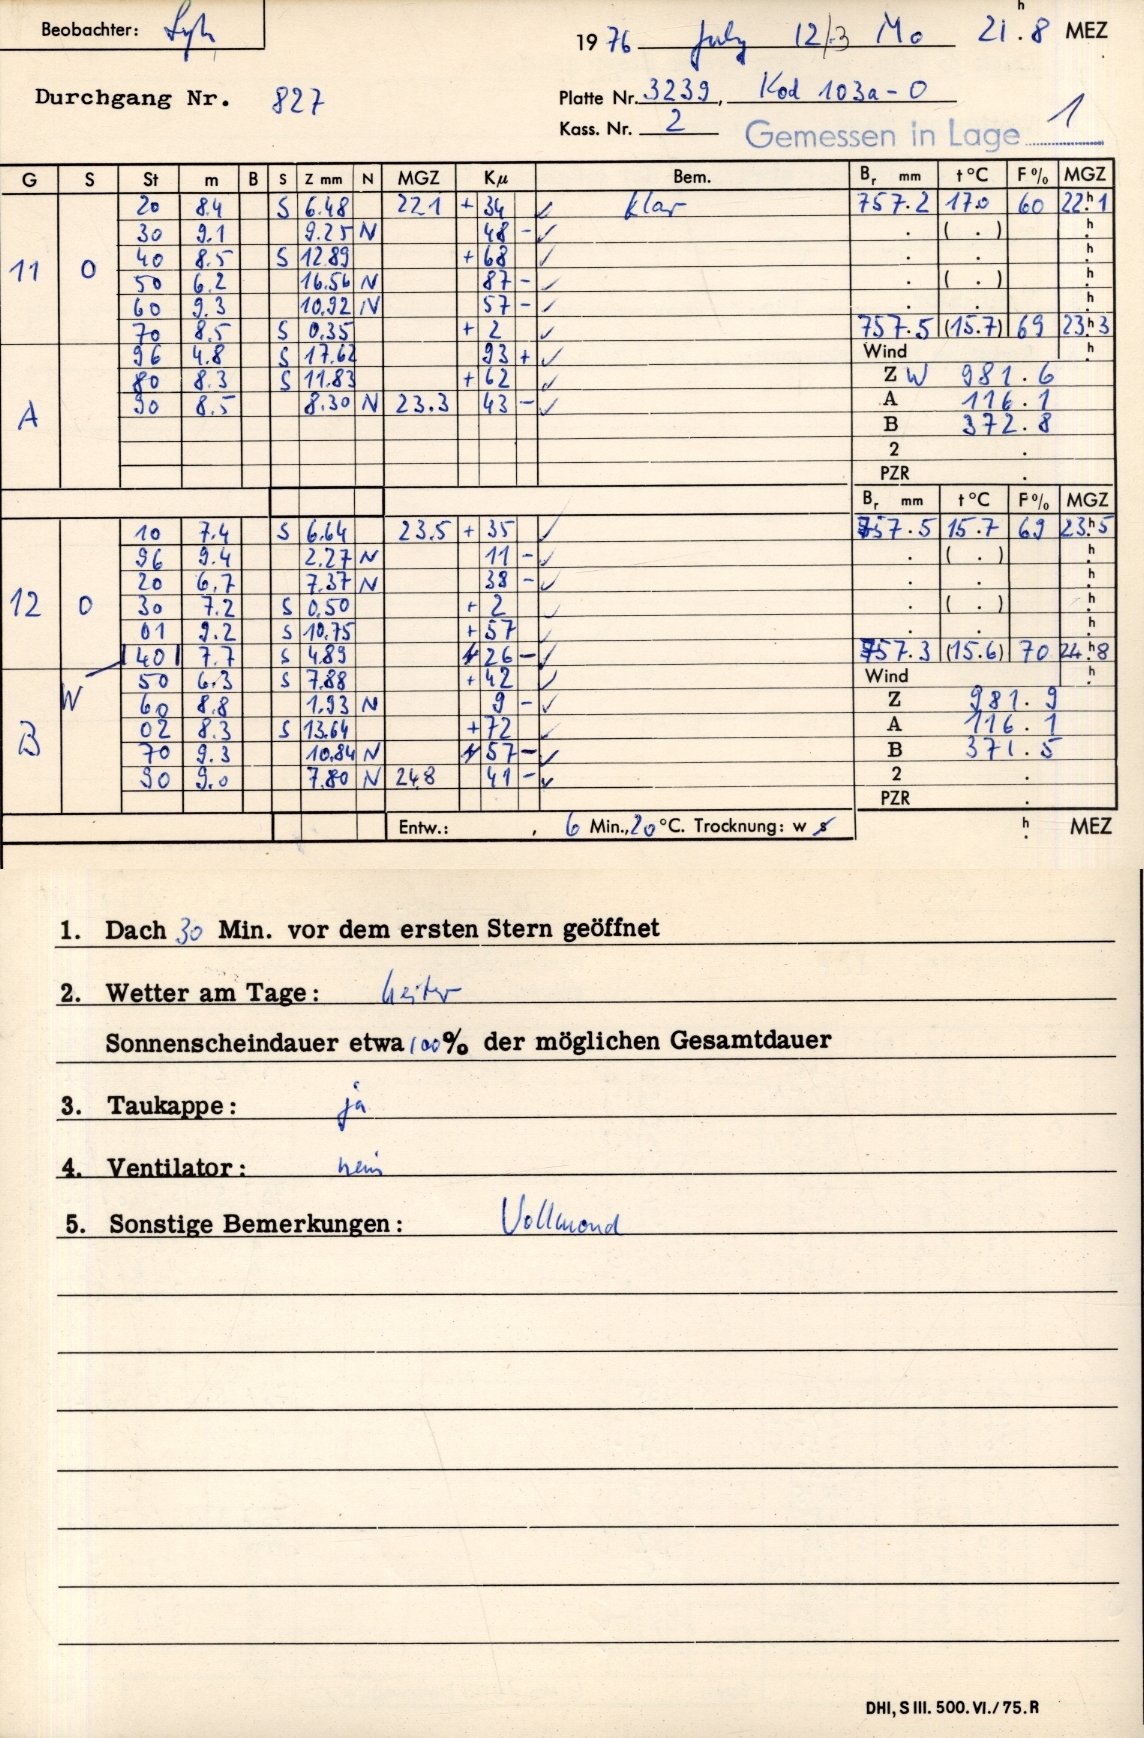 Beobachter:
1976 July 12/3 Mo 21h.8 MEZ
Durchgang Nr. 827
Platte Nr. 3239, Kod 103a-O
Kass. Nr. 2
Gemessen in Lage 1
G S St m B S Z mm N MGZ Kμ Bem. Br mm t °C F% MGZ
20 8.4 S 6.48 22.1 + 34 ✓ klar 757.2 17.0 60 22h.1
30 9.1 9.25 N 48 - ✓ . ( . ) h.
11 0 40 8.5 S 12.89 + 68 ✓ . . h.
50 6.2 16.56 N 87 - ✓ . ( . ) h.
60 9.3 10.92 N 57 - ✓ . . h.
70 8.5 S 0.35 + 2 ✓ 757.5 (15.7) 69 23h.3
96 4.8 S 17.62 93 + ✓ Wind h.
80 8.3 S 11.83 + 62 ✓ Z W 981.6
A 90 8.5 8.30 N 23.3 43 - ✓ A 116.1
B 372.8
2 .
PZR .
Br mm t °C F% MGZ
10 7.4 S 6.64 23.5 + 35 ✓ 757.5 15.7 69 23h.5
96 9.4 2.27 N 11 - ✓ . ( . ) h.
20 6.7 7.37 N 38 - ✓ . . h.
12 0 30 7.2 S 0.50 + 2 ✓ . ( . ) h.
01 9.2 S 10.75 + 57 ✓ . . h.
40 7.7 S 4.89 26 - ✓ 757.3 (15.6) 70 24h.8
W 50 6.3 S 7.88 + 42 ✓ Wind h.
60 8.8 1.93 N 9 - ✓ Z 981.9
B 02 8.3 S 13.64 + 72 ✓ A 116.1
70 9.3 10.84 N 57 - ✓ B 371.5
90 9.0 7.80 N 24.8 41 - ✓ 2 .
PZR .
Entw.: , 6 Min., 20 °C. Trocknung: w s h. MEZ
1. Dach 30 Min. vor dem ersten Stern geöffnet
2. Wetter am Tage: heiter
Sonnenscheindauer etwa 100% der möglichen Gesamtdauer
3. Taukappe: ja
4. Ventilator: nein
5. Sonstige Bemerkungen: Vollmond
DHI, S III. 500. VI./75. R